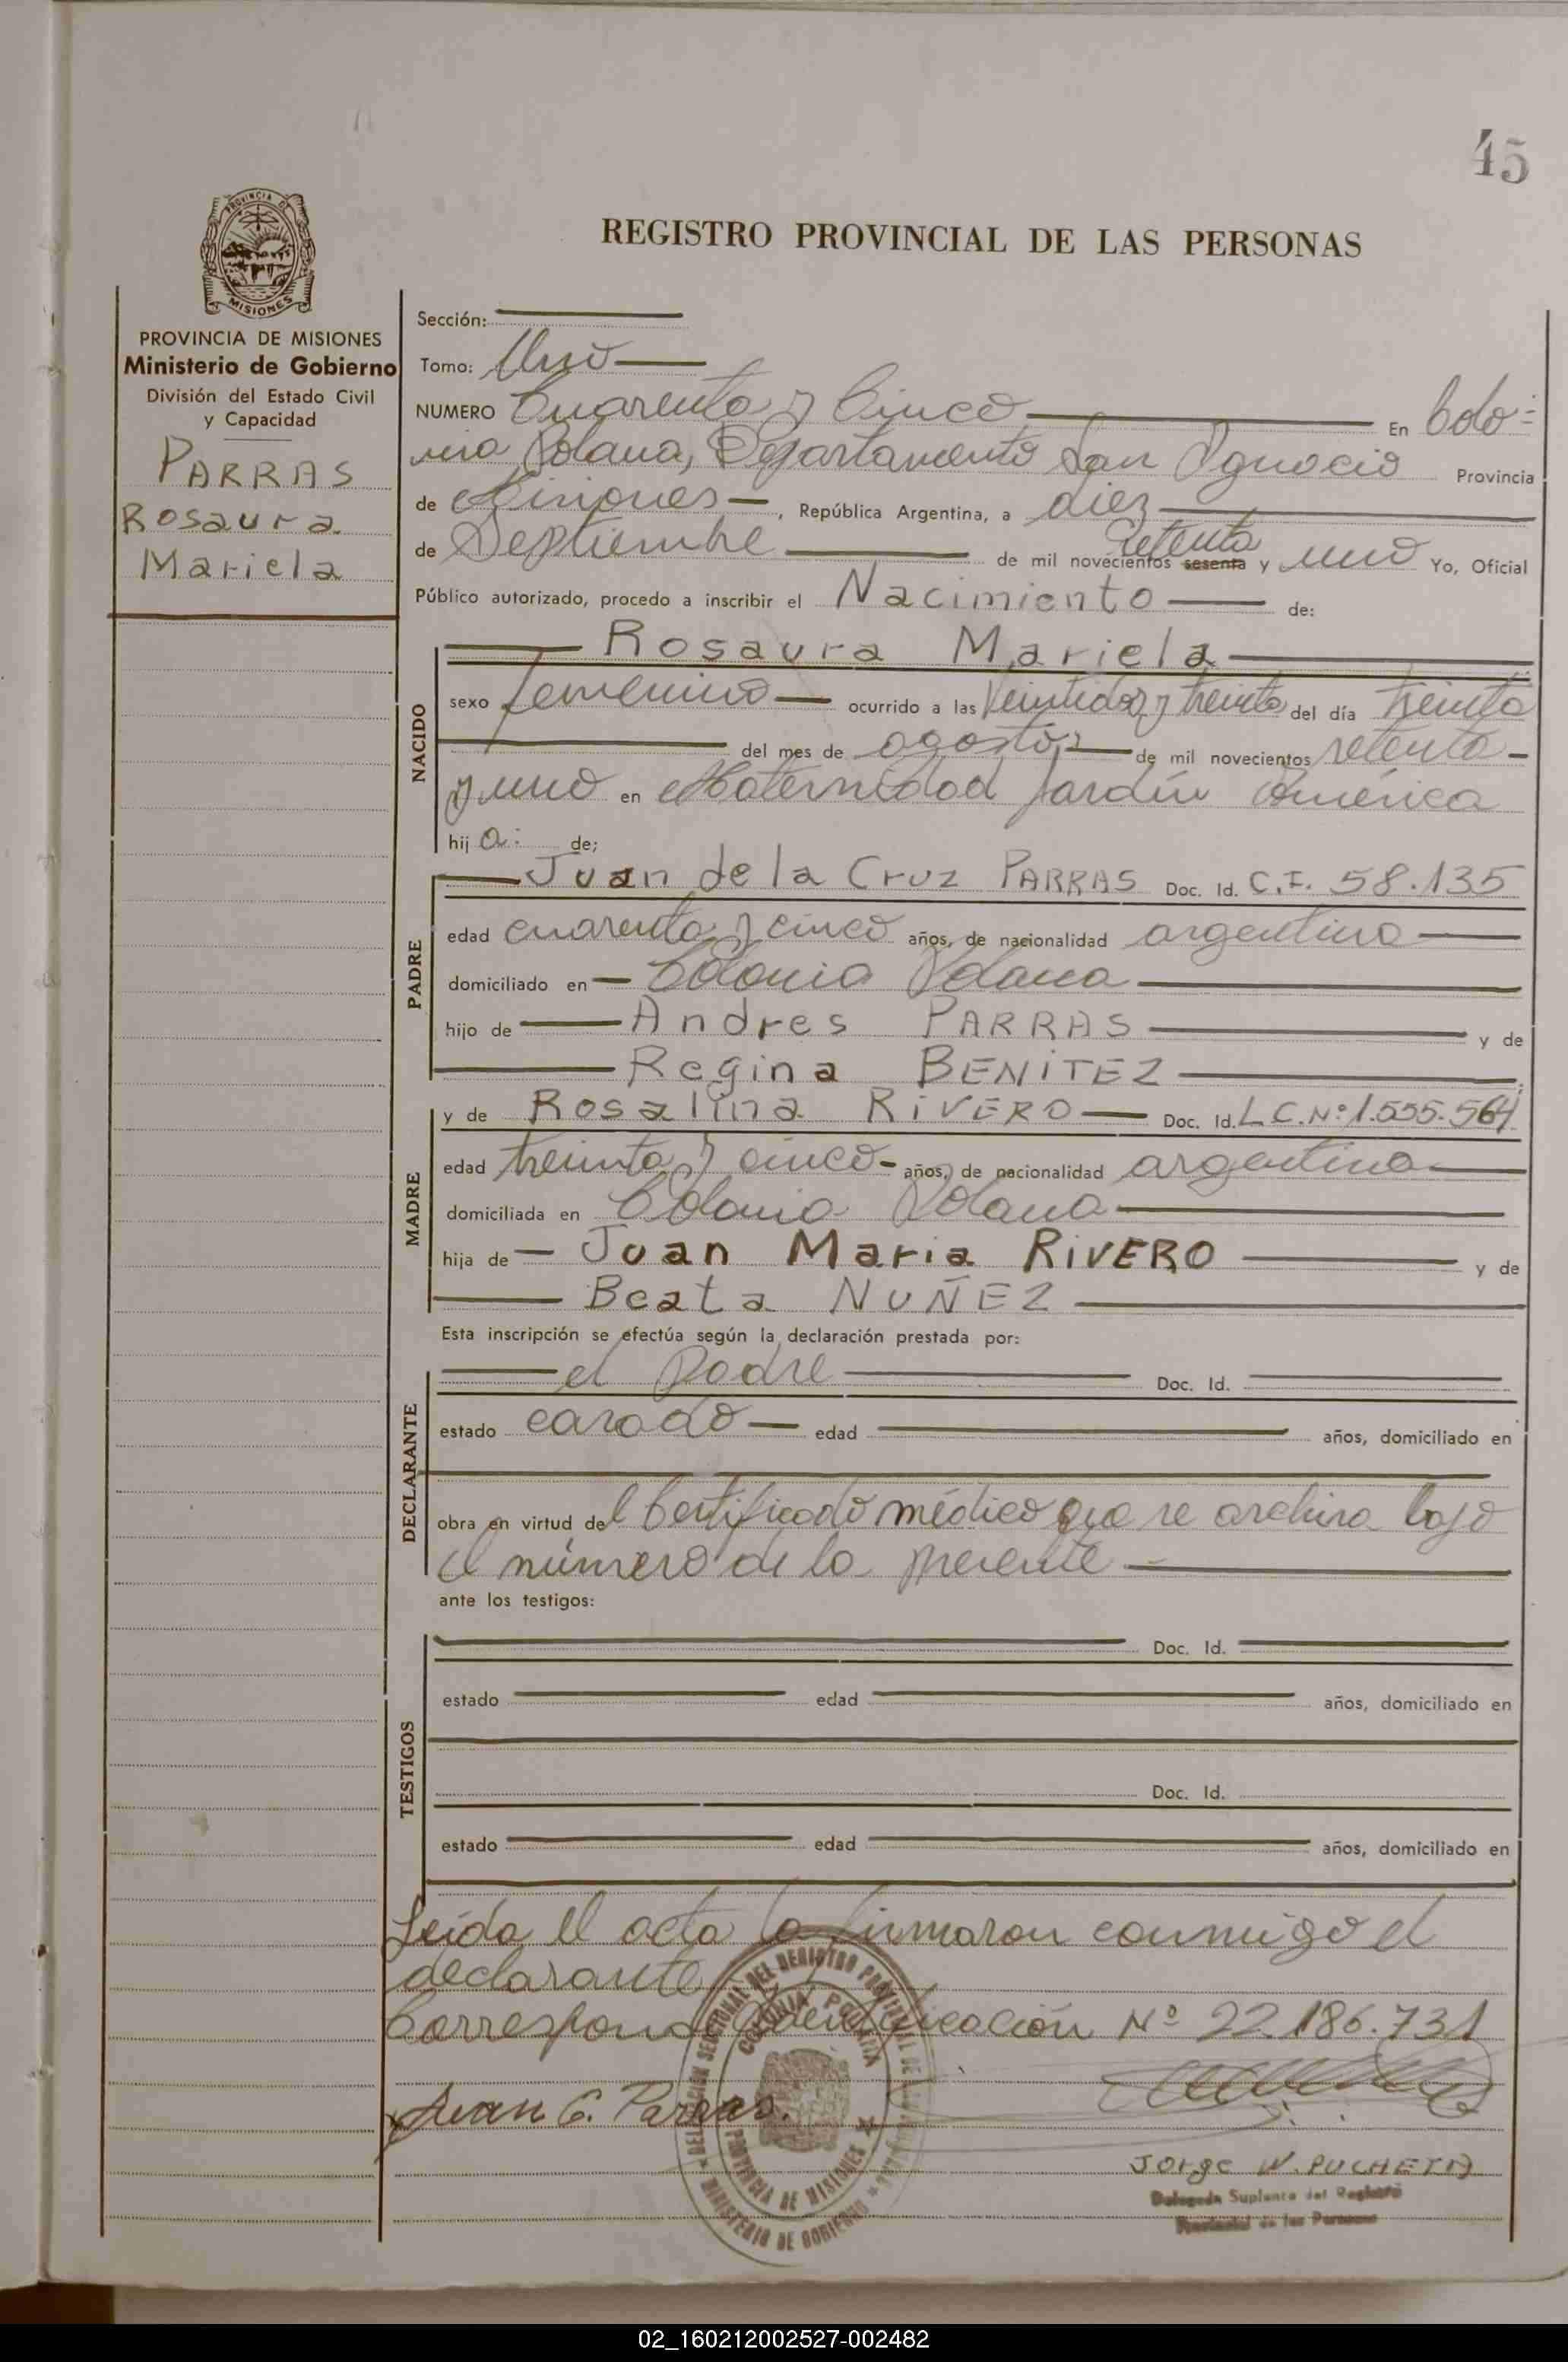 45
PROVINCIA DE
MISIONES
REGISTRO PROVINCIAL DE LAS PERSONAS
PROVINCIA DE MISIONES
Ministerio de Gobierno
División del Estado Civil
y Capacidad
PARRAS
Rosaura
Mariela
Sección:
Tomo: Uno
NUMERO Cuarenta y Cinco En Colo-
nia Polana, Departamento San Ignacio Provincia
de Misiones, República Argentina, a diez
de Septiembre de mil novecientos sesenta Setenta y uno Yo, Oficial
Público autorizado, procedo a inscribir el Nacimiento de:
Rosaura Mariela
NACIDO
sexo femenino ocurrido a las Veintidos y treinta del día treinta
del mes de agosto de mil novecientos setenta
y uno en Maternidad Jardín América
hija: de;
PADRE
Juan de la Cruz PARRAS Doc. Id. C.I. 58.135
edad cuarenta y cinco años, de nacionalidad argentino
domiciliado en Colonia Polana
hijo de Andres PARRAS y de
Regina BENITEZ
MADRE
y de Rosalina RIVERO Doc. Id. L.C.Nº 1.555.564
edad treinta y cinco años, de nacionalidad argentina
domiciliada en Colonia Polana
hija de Juan Maria RIVERO y de
Beata NUÑEZ
Esta inscripción se efectúa según la declaración prestada por:
DECLARANTE
el padre Doc. Id.
estado casado edad años, domiciliado en
obra en virtud del Certificado médico que se archiva bajo
el número de la presente
ante los testigos:
TESTIGOS
Doc. Id.
estado edad años, domiciliado en
Doc. Id.
estado edad años, domiciliado en
Leída el acta la firmaron conmigo el
declarante
Corresponde Identificación Nº 22.186.731
Juan C. Parras.
DELEGACION SECCIONAL DEL REGISTRO PROVINCIAL DE LAS PERSONAS
COLONIA POLANA
PROVINCIA DE MISIONES
MINISTERIO DE GOBIERNO
Jorge W. PUCHETA
Delegado Suplente del Registro
Provincial de las Personas
02_160212002527-002482